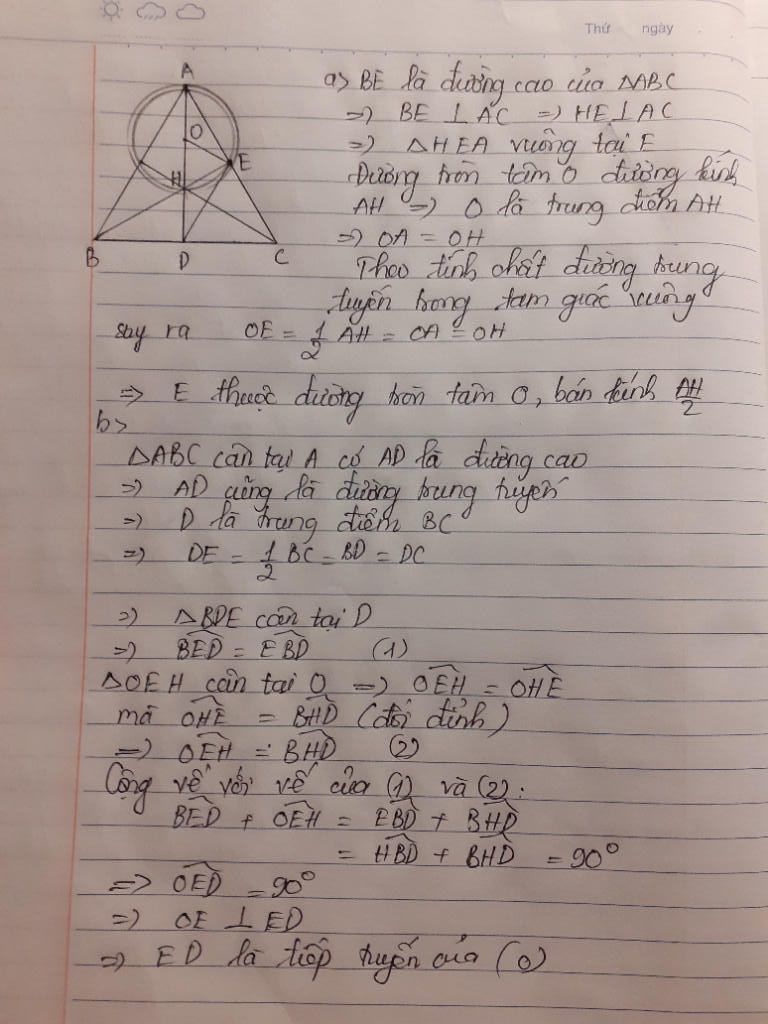 Thứ ngày
A
O
E
H
B D C
a) BE là đường cao của ΔABC
=> BE ⊥ AC => HE ⊥ AC
=> ΔHEA vuông tại E
Đường tròn tâm O đường kính
AH => O là trung điểm AH
=> OA = OH
Theo tính chất đường trung
tuyến trong tam giác vuông
suy ra OE = 1/2 AH = OA = OH
=> E thuộc đường tròn tâm O, bán kính AH/2
b>
ΔABC cân tại A có AD là đường cao
=> AD cũng là đường trung tuyến
=> D là trung điểm BC
=> DE = 1/2 BC = BD = DC
=> ΔBDE cân tại D
=> BED̂ = EBD̂ (1)
ΔOEH cân tại O => OEĤ = OHÊ
mà OHÊ = BHD̂ (đối đỉnh)
=> OEĤ = BHD̂ (2)
Cộng vế với vế của (1) và (2):
BED̂ + OEĤ = EBD̂ + BHD̂
= HBD̂ + BHD̂ = 90°
=> OED̂ = 90°
=> OE ⊥ ED
=> ED là tiếp tuyến của (O)